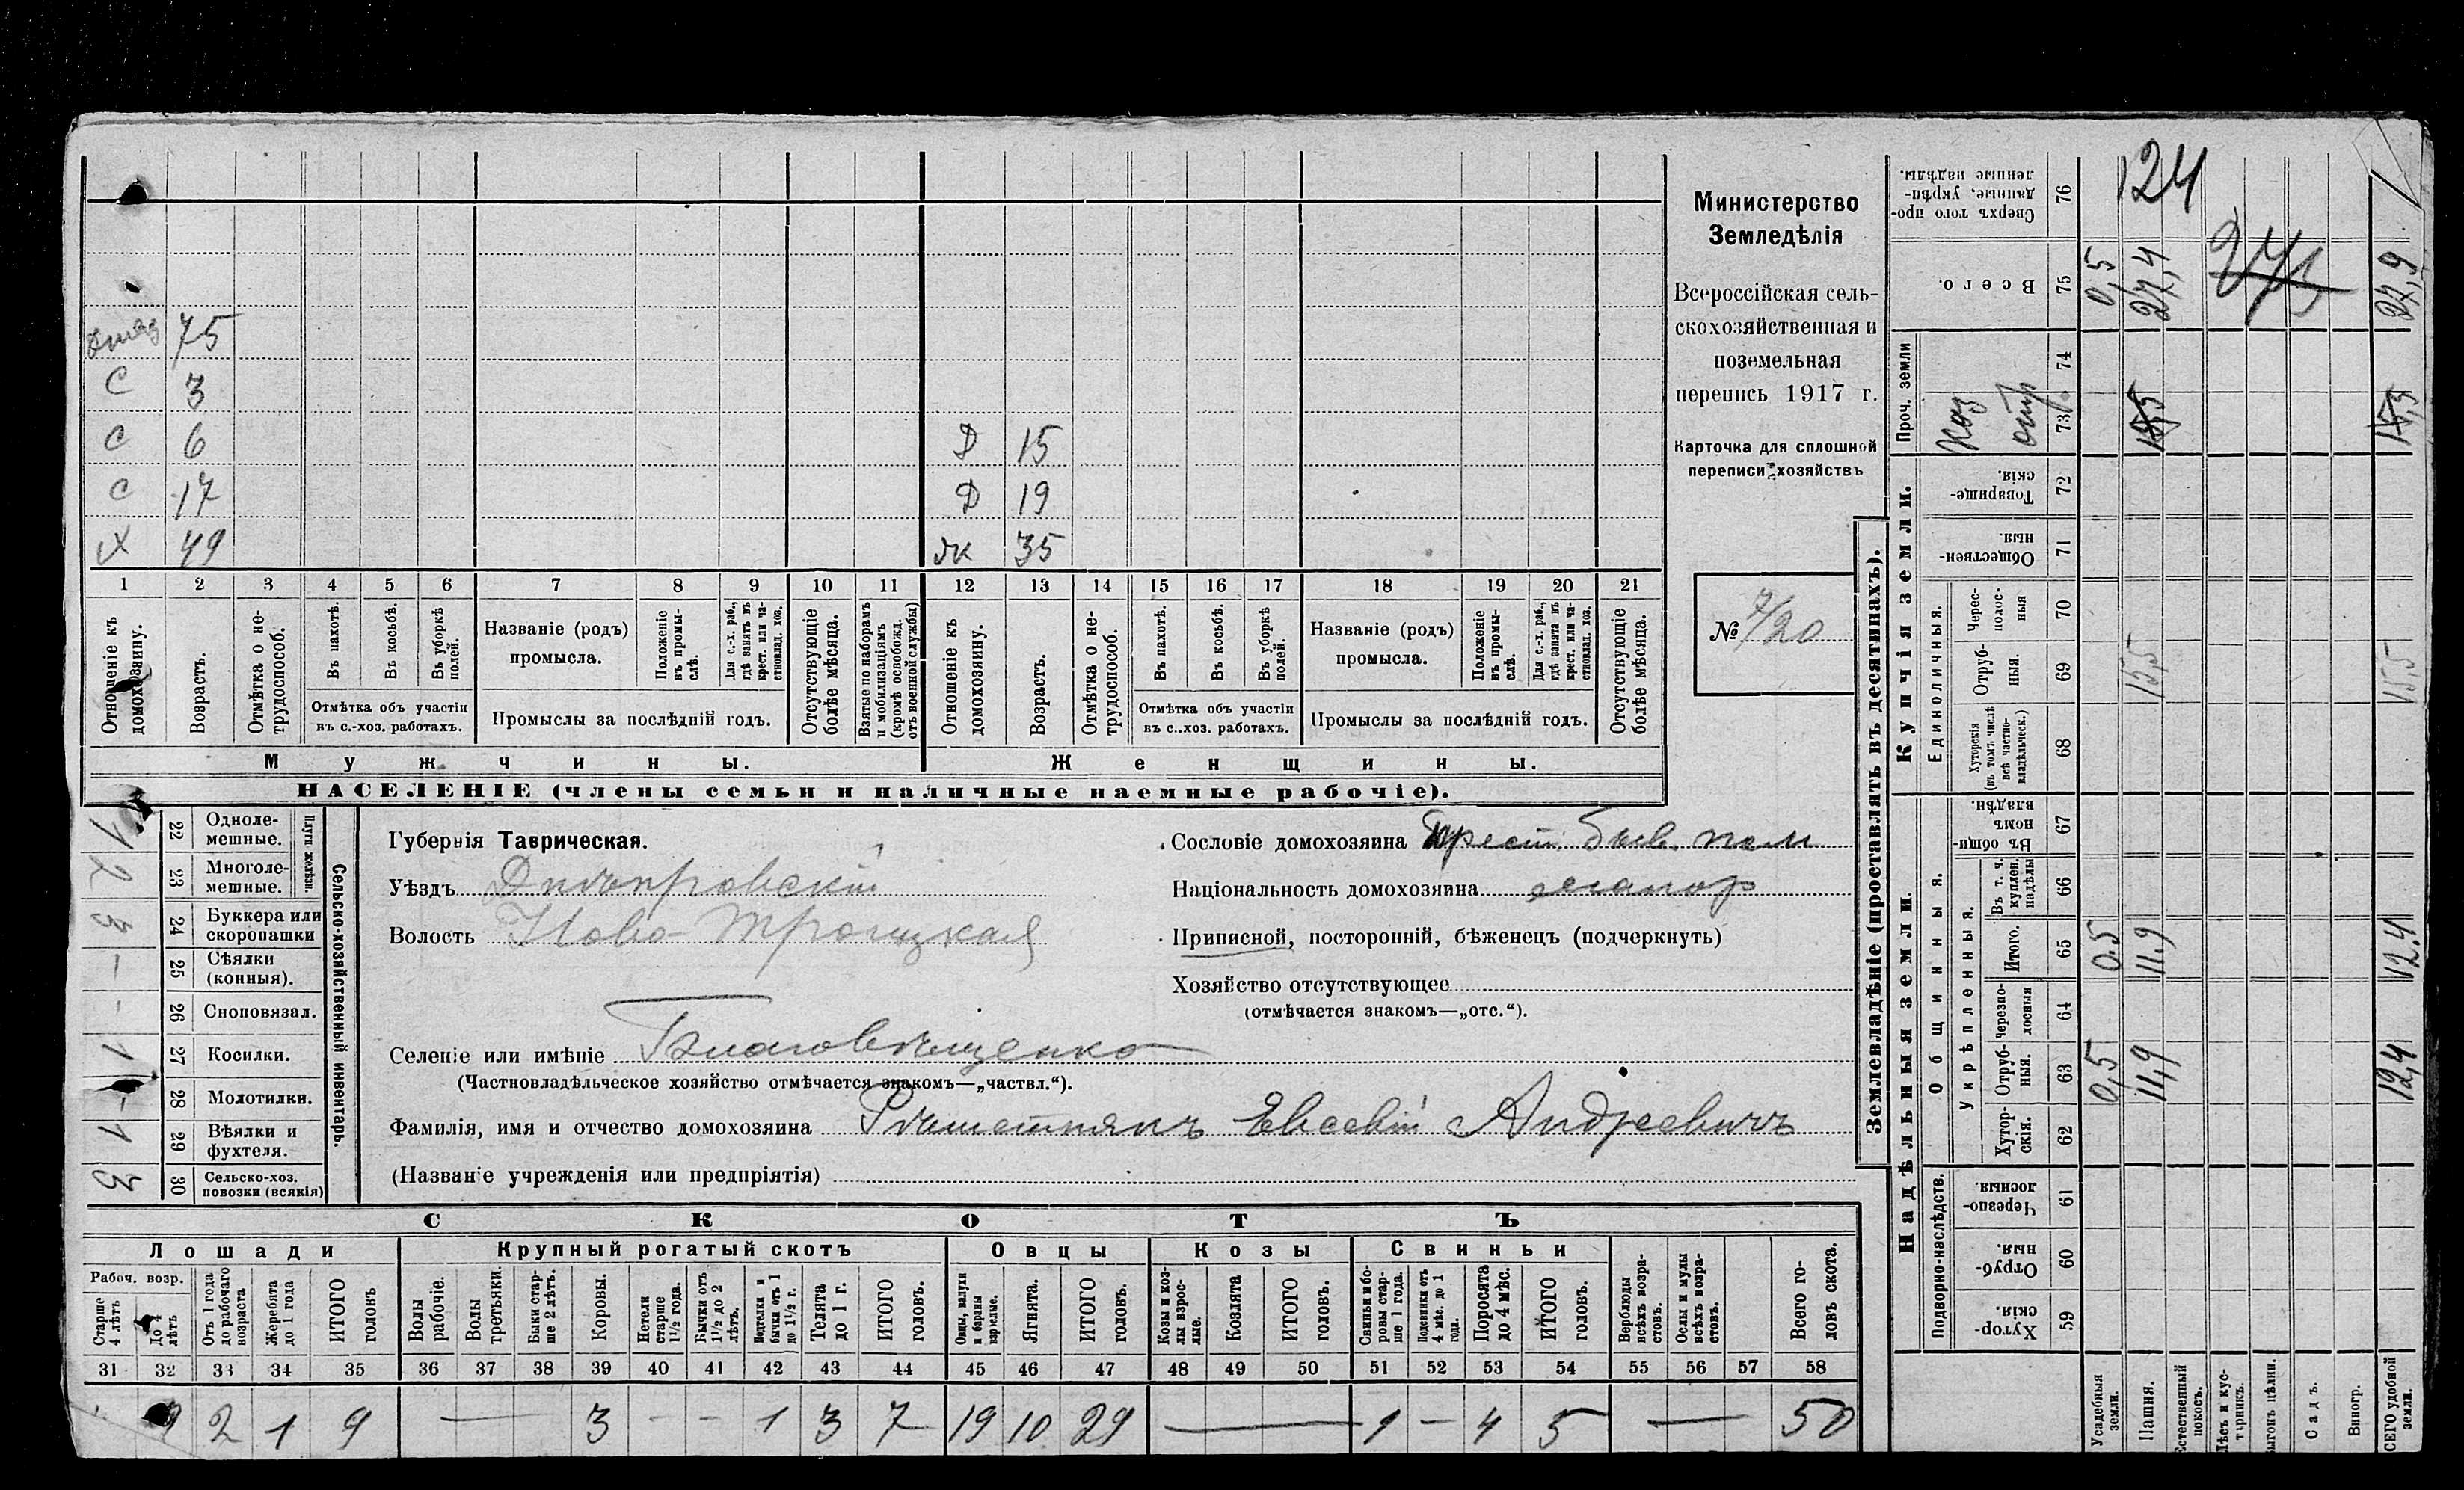 Министерство
Земледѣлія
Всероссійская сель-
скохозяйственная и
поземельная
перепись 1917 г.
Карточка для сплошной
переписи хозяйствъ
№ 7/20
75
С 3
С 6 Д 15
С 17 Д 19
Х 49 жк 35
1 2 3 4 5 6 7 8 9 10 11 12 13 14 15 16 17 18 19 20 21
Отношеніе къ домохозяину.
Возрастъ.
Отмѣтка о не-трудоспособ.
Въ пахотѣ.
Въ косьбѣ.
Въ уборкѣ полей.
Отмѣтка объ участіи
въ с.-хоз. работахъ.
Названіе (родъ)
промысла.
Положеніе въ промы-слѣ.
Для с.-х. раб., гдѣ занятъ въ крест. или ча-стновлад. хоз.
Промыслы за послѣдній годъ.
Отсутствующіе болѣе мѣсяца.
Взятые по наборамъ и мобилизаціямъ (кромѣ освобожд. отъ военной службы)
Отношеніе къ домохозяину.
Возрастъ.
Отмѣтка о не-трудоспособ.
Въ пахотѣ.
Въ косьбѣ.
Въ уборкѣ полей.
Отмѣтка объ участіи
въ с.-хоз. работахъ.
Названіе (родъ)
промысла.
Положеніе въ промы-слѣ.
Для с.-х. раб., гдѣ занята въ крест. или ча-стновлад. хоз.
Промыслы за послѣдній годъ.
Отсутствующіе болѣе мѣсяца.
Мужчины. Женщины.
НАСЕЛЕНІЕ (члены семьи и наличные наемные рабочіе).
Сельско-хозяйственный инвентарь.
Плуги желѣзн.
1 22 Однолемешные.
2 23 Многолемешные.
3 24 Буккера или скоропашки
– 25 Сѣялки (конныя).
– 26 Сноповязал.
1 27 Косилки.
– 28 Молотилки.
1 29 Вѣялки и фухтеля.
3 30 Сельско-хоз. повозки (всякія)
Губернія Таврическая.
Уѣздъ Днѣпровскій
Волость Ново-Троицкая
Селеніе или имѣніе Благовѣщенко
(Частновладѣльческое хозяйство отмѣчается знакомъ—„частвл.“).
Фамилія, имя и отчество домохозяина Рѣшетнякъ Евсевій Андреевичъ
(Названіе учрежденія или предпріятія)
Сословіе домохозяина Крест. быв. пом
Національность домохозяина малор
Приписной, посторонній, бѣженецъ (подчеркнуть)
Хозяйство отсутствующее
(отмѣчается знакомъ—„отс.“).
СКОТЪ
Лошади Крупный рогатый скотъ Овцы Козы Свиньи
Рабоч. возр.
Старше 4 лѣтъ
До 4 лѣтъ
Отъ 1 года до рабочаго возраста
Жеребята до 1 года
ИТОГО головъ
Волы рабочіе.
Волы третьяки.
Быки стар-ше 2 лѣтъ.
Коровы.
Нетели старше 1½ года.
Бычки отъ 1½ до 2 лѣтъ.
Подтелки и бычки отъ 1 до 1½ г.
Телята до 1 г.
ИТОГО головъ.
Овцы, валухи и бараны взрослые.
Ягнята.
ИТОГО головъ.
Козы и коз-лы взрос-лые.
Козлята
ИТОГО головъ.
Свиньи и бо-ровы стар-ше 1 года.
Подсвинки отъ 4 мѣс. до 1 года.
Поросята до 4 мѣс.
ИТОГО головъ.
Верблюды всѣхъ возра-стовъ.
Ослы и мулы всѣхъ возра-стовъ.
Всего го-ловъ скота.
31 32 33 34 35 36 37 38 39 40 41 42 43 44 45 46 47 48 49 50 51 52 53 54 55 56 57 58
2 1 9 — 3 – – 1 3 7 19 10 29 — 1 – 4 5 — 50
Землевладѣніе (проставлять въ десятинахъ).
Надѣльныя земли. Купчія земли.
Проч. земли
Подворно-наслѣдств.
Общинныя.
Укрѣпленныя.
Единоличныя.
Сверхъ того про-данные, укрѣп-ленные надѣлы. 76 124
Всего. 75 0,5 27,4 27,9
74
73 15,5 15,5
Товарище-скія 72
Обществен-ныя. 71
Черес-полос-ныя 70
Отруб-ныя 69 15,5 15,5
Хуторскія (въ томъ числѣ всѣ частно-владѣльческ.) 68
Въ общи-номъ владѣн. 67
Въ т. ч. куплен. надѣлы 66
Итого. 65 0.5 11,9 12.4
Черезпо-лосныя 64
Отруб-ныя. 63 0,5 11,9 12,4
Хутор-скія. 62
Черезпо-лосныя. 61
Отруб-ныя. 60
Хутор-скія. 59
Усадебныя земли.
Пашня.
Естественный покосъ.
Лѣсъ и кус-тарникъ.
Выгонъ цѣлин.
Садъ.
Виногр.
ВСЕГО удобной земли.